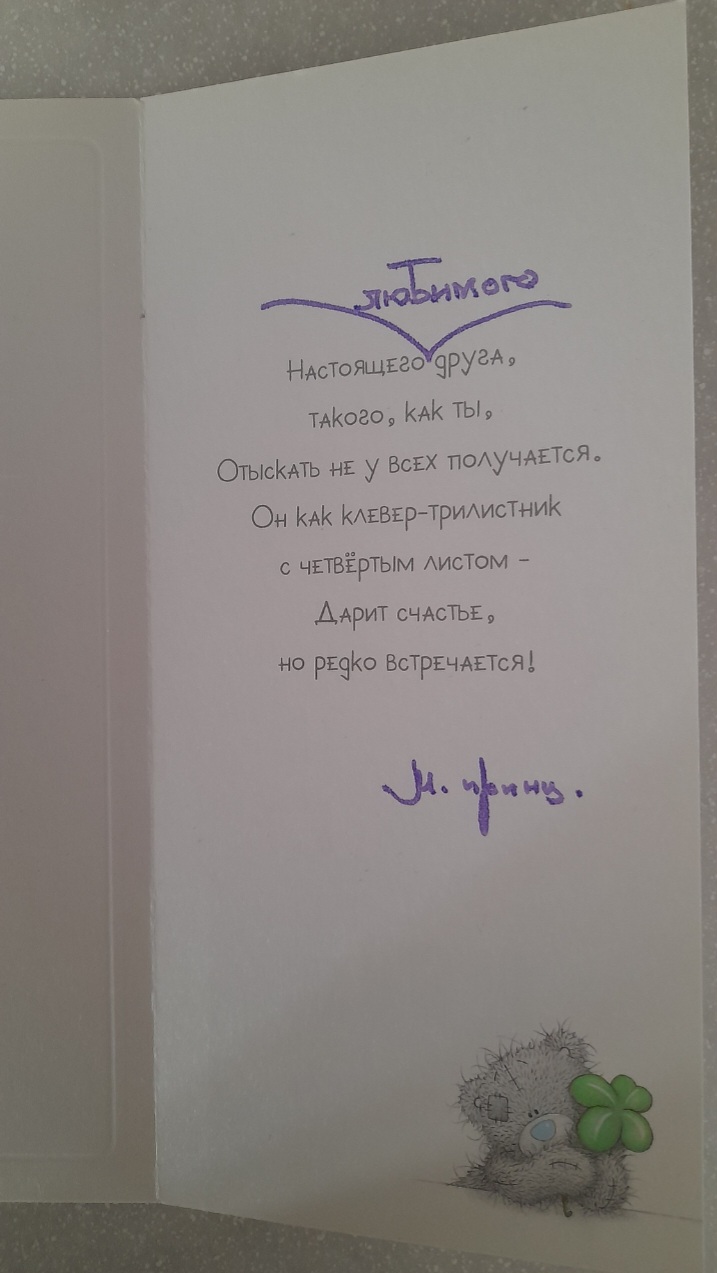 любимого
Настоящего друга,
такого, как ты,
Отыскать не у всех получается.
Он как клевер-трилистник
с четвёртым листом –
Дарит счастье,
но редко встречается!
М. принц.